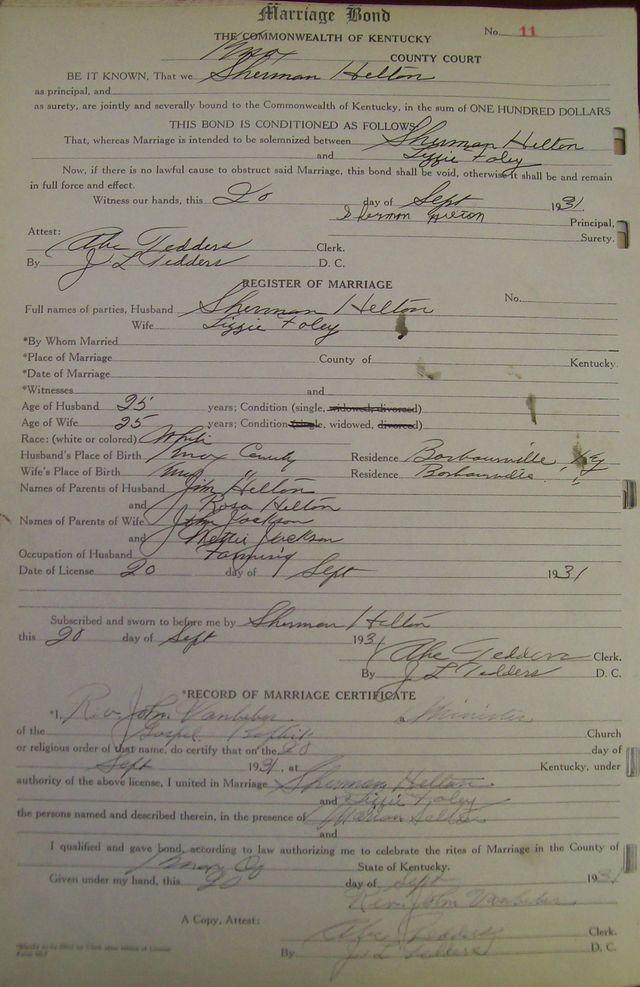 Marriage Bond
THE COMMONWEALTH OF KENTUCKY
No. 11
Knox COUNTY COURT
BE IT KNOWN, That we Sherman Helton
as principal, and
as surety, are jointly and severally bound to the Commonwealth of Kentucky, in the sum of ONE HUNDRED DOLLARS
THIS BOND IS CONDITIONED AS FOLLOWS:
That, whereas Marriage is intended to be solemnized between Sherman Helton
and Lizzie Foley
Now, if there is no lawful cause to obstruct said Marriage, this bond shall be void, otherwise it shall be and remain
in full force and effect.
Witness our hands, this 20 day of Sept 1931.
Sherman Helton Principal,
Surety.
Attest:
Abe Tedders Clerk.
By J L Tedders D. C.
REGISTER OF MARRIAGE
No.
Full names of parties, Husband Sherman Helton
Wife Lizzie Foley
*By Whom Married
*Place of Marriage County of Kentucky.
*Date of Marriage
*Witnesses and
Age of Husband 25 years; Condition (single, widowed, divorced)
Age of Wife 25 years; Condition (single, widowed, divorced)
Race: (white or colored) White
Husband's Place of Birth Knox County Residence Barbourville, Ky
Wife's Place of Birth Knox " Residence Barbourville "
Names of Parents of Husband Jim Helton
and Rosa Helton
Names of Parents of Wife John Jackson
and Nettie Jackson
Occupation of Husband Farming
Date of License 20 day of Sept 1931
Subscribed and sworn to before me by Sherman Helton
this 20 day of Sept 1931
Abe Tedders Clerk.
By J L Tedders D. C.
*RECORD OF MARRIAGE CERTIFICATE
*I, Rev. John Vanbeber Minister
of the Gospel Baptist Church
or religious order of that name, do certify that on the 20 day of
Sept 1931, at Kentucky, under
authority of the above license, I united in Marriage Sherman Helton
and Lizzie Foley
the persons named and described therein, in the presence of Marion Helton
and
I qualified and gave bond, according to law authorizing me to celebrate the rites of Marriage in the County of
Knox Co State of Kentucky.
Given under my hand, this 20 day of Sept 1931
Rev. John Vanbeber
A Copy, Attest:
Abe Tedders Clerk.
By J L Tedders D. C.